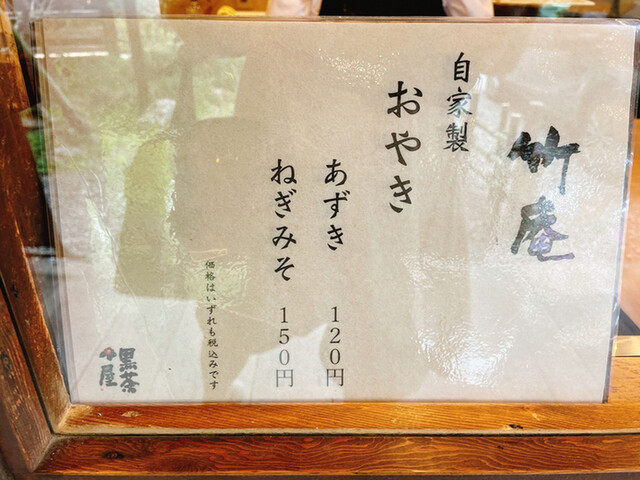 竹庵
自家製
おやき
あずき 120円
ねぎみそ 150円
価格はいずれも税込みです
黒茶屋